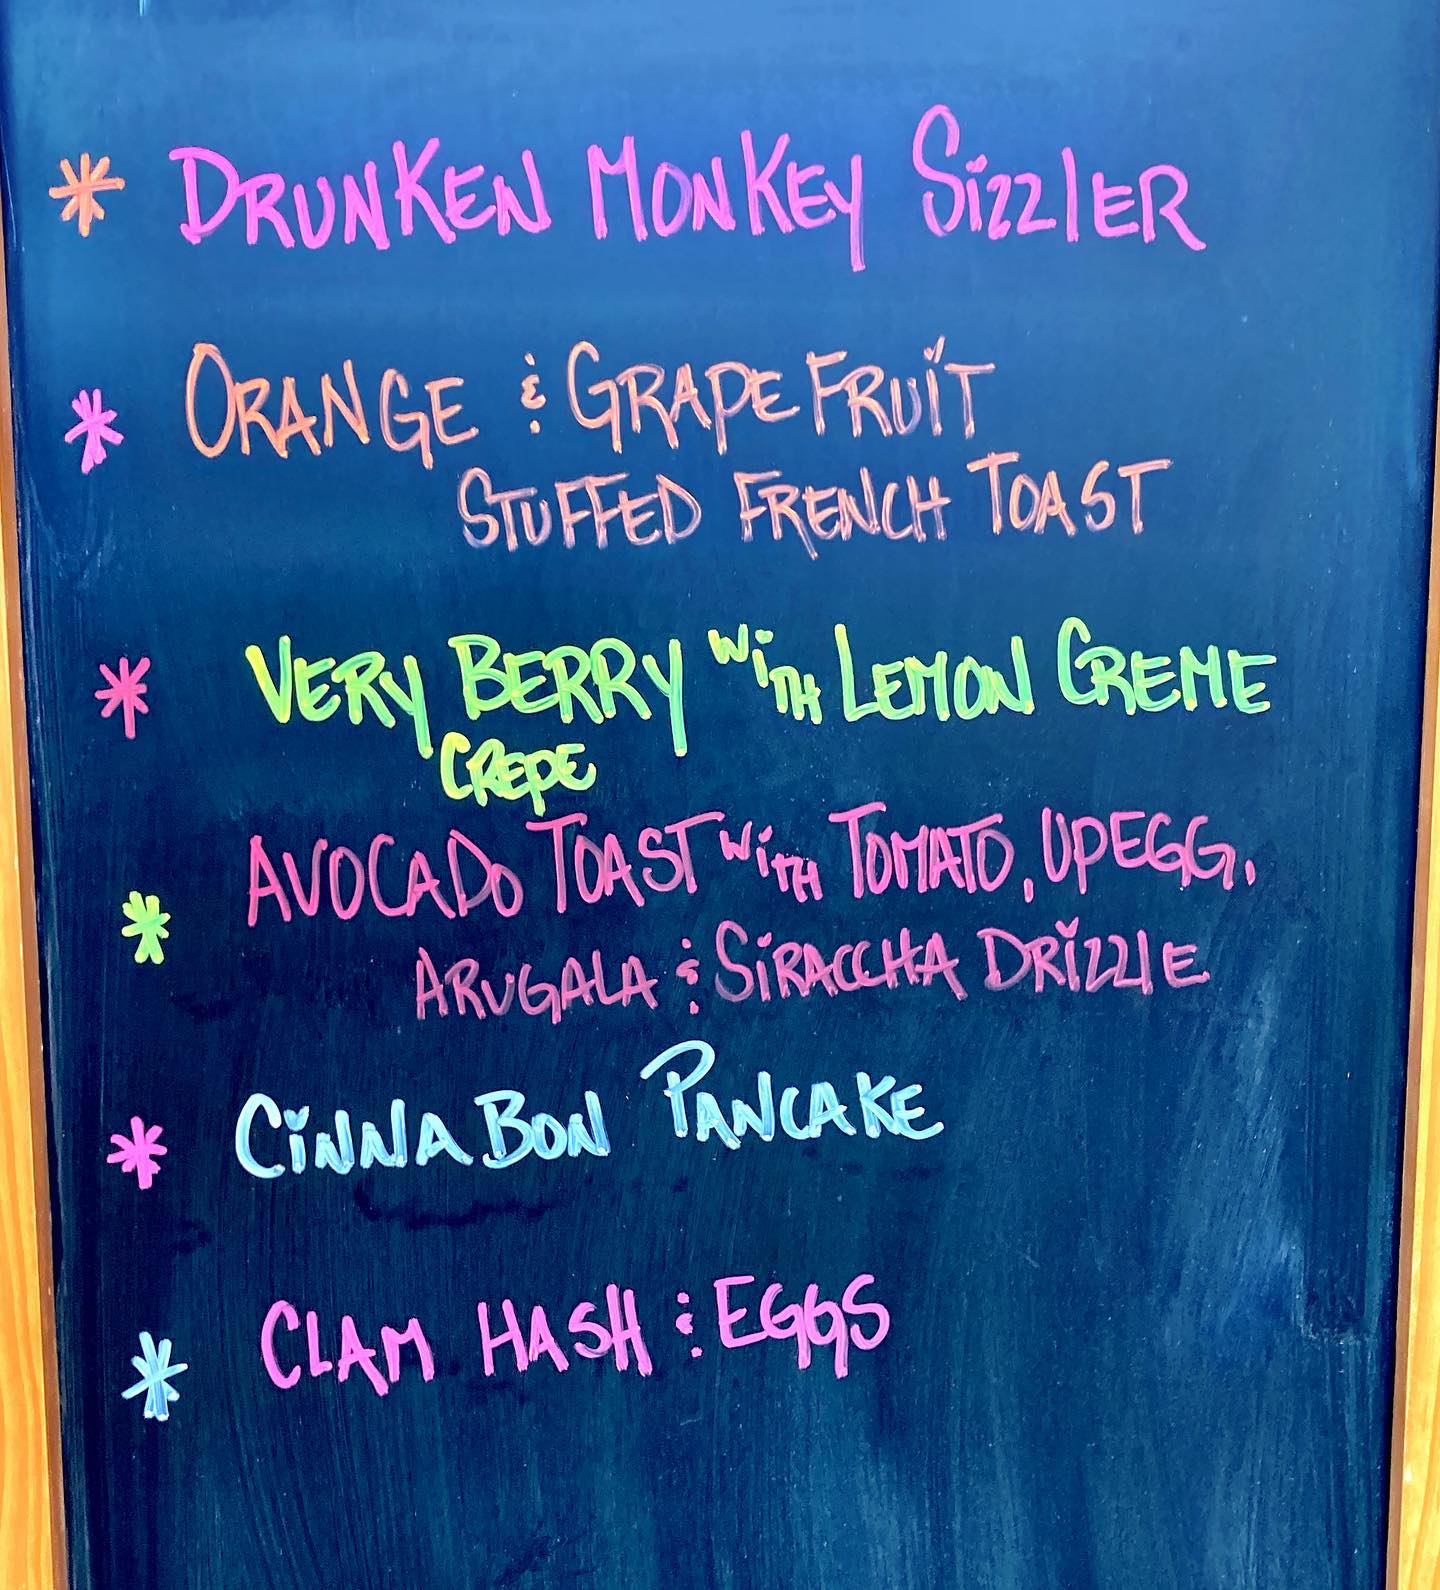 * DRUNKEN MONKEY SizzlER
* ORANGE & GRAPEFRUiT
STUFFED FRENCH TOAST
* VERY BERRY WiTH LEMON CREME
CREPE
* AVOCADO TOAST WiTH TOMATO, UPEGG,
ARUGALA & SiRACCHA DRizzlE
* CiNNABON PANCAKE
* CLAM HASH & EGGS